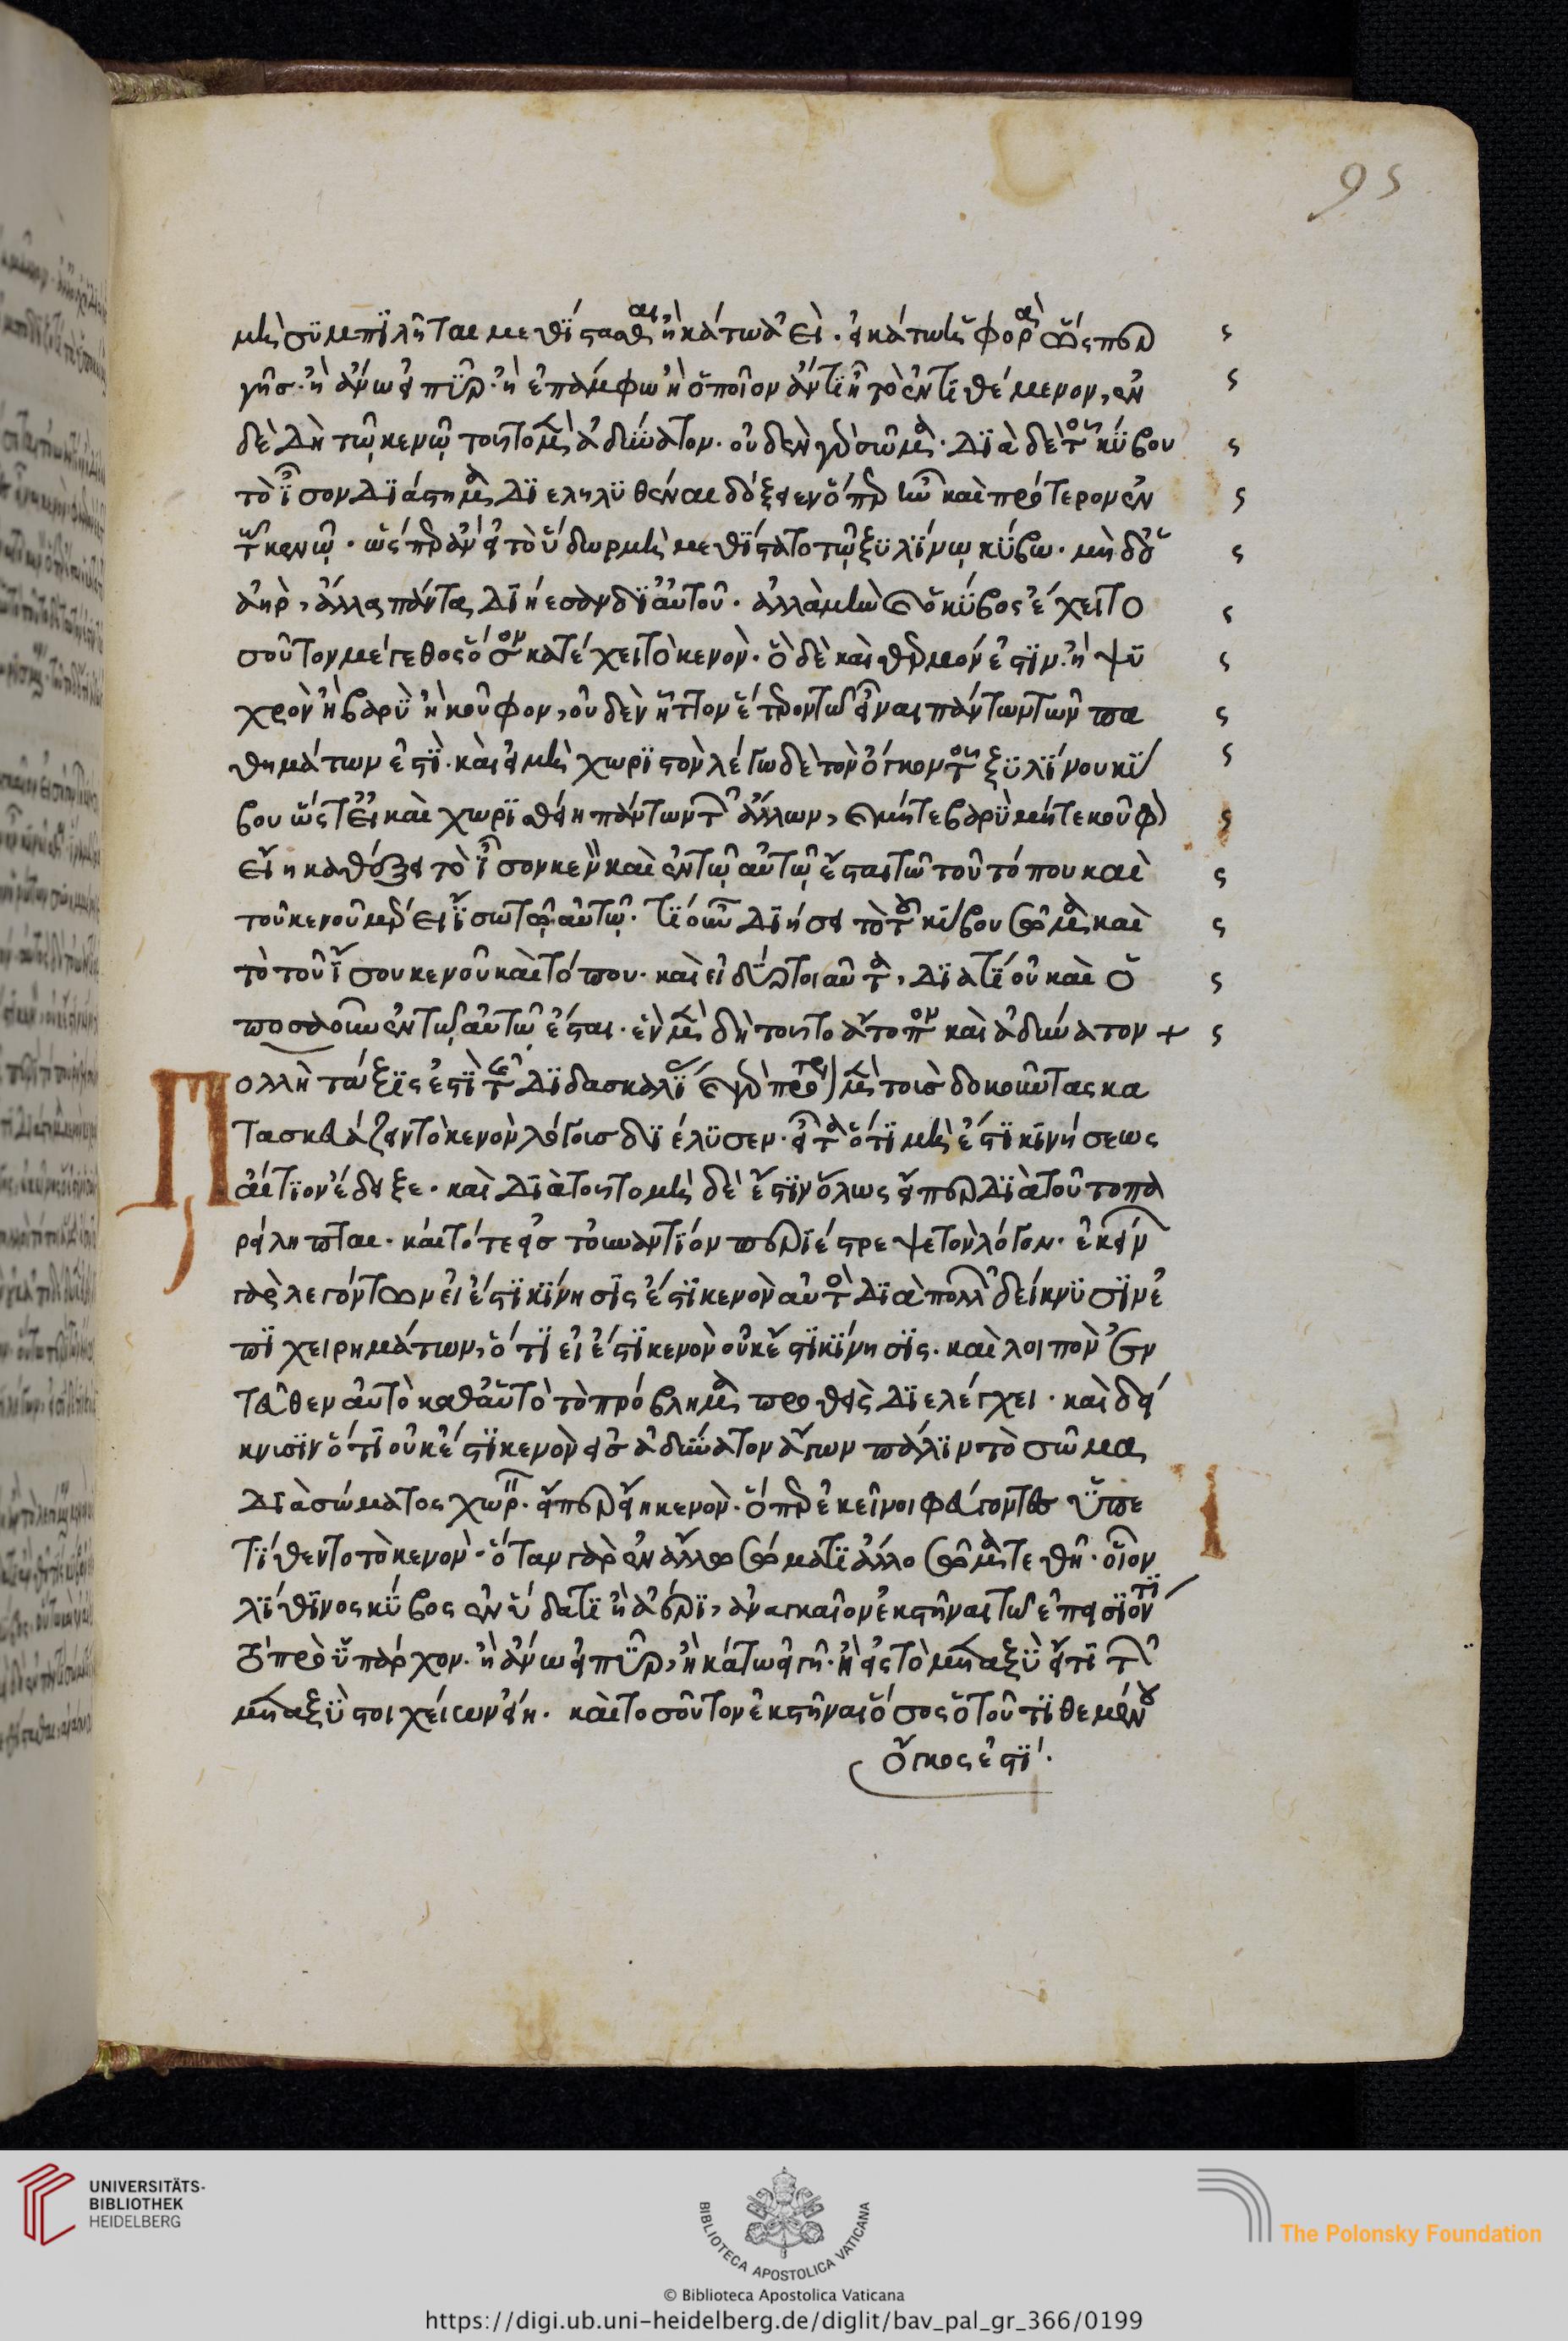 μὴ συμπϊλῆται μεθΐστασθαι, ἢ κάτω ἀεὶ. εἰ κάτω ἡ φορὰ ὥσπερ
γῆσ. ἢ ἄνω εἰ πῦρ. ἢ ἐπάμφω ἢ ὁποῖον ἄντϊ ἦ τὸ ἐντϊθέμενον, ἐν
δὲ δὴ τῶ κενῶ τοῦτο μὲν ἀδύνατον. οὐδὲν γὰρ σῶμα. διὰ δὲ τοῦ κύβου
τὸ ἴσον διάστημα διεληλυθέναι δόξειεν ὅπερ ἦν καὶ πρότερον ἐν
τῶ κενῶ. ὥσπερ ἂν εἰ τὸ ὕδωρ μὴ μεθΐστατο τῶ ξυλΐνω κύβω. μηδ ὁ
ἀὴρ, ἀλλα πάντα διήεσαν δϊ αὐτοῦ. ἀλλὰ μὴν καὶ ὁ κύβος ἔχει το
σοῦτον μέγεθος ὅσον κατέχει τὸ κενὸν. ὃ δὲ καὶ θερμόν ἐστϊν. ἢ ψυ
χρὸν ἢ βαρὺ ἢ κοῦφον, οὐδὲν ἧττον ἕτερον τῶ εἶναι πάντων τῶν πα
θημάτων ἐστὶ. καὶ εἰ μὴ χωρϊστὸν λέγω δὲ τὸν ὄγκον τοῦ ξυλΐνου κύ
βου ὥστ εἰ καὶ χωρϊσθείη πάντων τῶν ἄλλων, καὶ μήτε βαρὺ μήτε κοῦφον
εἴη καθέξει τὸ ἴσον κενὸν καὶ ἐν τῶ αὐτῶ ἔσται τῶ τοῦ τόπου καὶ
τοῦ κενοῦ μέρει ἴσω τῶ αὐτῶ. τΐ οὖν διήσει τὸ τοῦ κύβου σῶμα καὶ
τὸ τοῦ ἴσου κενοῦ καὶ τόπου. καὶ εἰ δύο τοιαῦτα, διατΐ οὐ καὶ ὁ
ποσαοῦν ἐν τῶ αὐτῶ ἔσται. ἓν μὲν δὴ τοῦτο ἄτοπον καὶ ἀδύνατον +
Πολλὴ τάξϊς ἐστὶ τῆς διδασκαλΐας καὶ γὰρ πρότερον μὲν τοὺσ δοκοῦντας κα
τασκευάζειν τὸ κενὸν λόγουσ δϊέλυσεν. εἶτα ὅτϊ μὴ ἔστϊ κϊνήσεως
αἴτϊον ἔδειξε. καὶ διὰ τοῦτο μὴ δὲ ἔστϊν ὅλως εἴπερ διὰ τοῦτο πα
ρείληπται. καὶ τότε εἰσ τοὐναντϊόν περιέστρεψε τὸν λόγον. ἐκείνων
γὰρ λεγόντων εἰ ἔστϊ κΐνησϊς ἔστϊ κενὸν αὐτὸς διὰ πολλῶν δείκνυσϊν ἐ
πϊχειρημάτων, ὅτϊ εἰ ἔστϊ κενὸν οὐκ ἔστϊ κΐνησϊς. καὶ λοιπὸν ἐν
ταῦθεν αὐτὸ καθ αὑτὸ τὸ πρόβλημα προθεὶς διελέγχει. καὶ δεί
κνυσϊν ὅτϊ οὐκ ἔστϊ κενὸν εἰσ ἀδύνατον ἄγων πάλϊν τὸ σῶμα
διὰ σώματος χωρεῖν. εἴπερ εἴη κενὸν. ὅπερ ἐκεῖνοι φεύγοντες ὑπε
τΐθεντο τὸ κενὸν. ὅταν γὰρ ἐν ἄλλω σώματϊ ἄλλο σῶμα τεθῆ. οἷον
λΐθϊνος κύβος ἐν ὕδατϊ ἢ ἀέρϊ, ἀναγκαῖον ἐκστῆναι τῶ ἐπεισϊόντϊ
ὃ προϋπάρχον. ἢ ἄνω εἰ πῦρ, ἢ κάτω εἰ γῆ. ἢ εἰς τὸ μεταξὺ εἴ τϊ τῶν
μεταξὺ στοιχείων εἴη. καὶ τοσοῦτον ἐκστῆναι ὅσος ὁ τοῦ τϊθεμένου
ὄγκος ἐστΐ.
UNIVERSITÄTS-
BIBLIOTHEK
HEIDELBERG
BIBLIOTECA APOSTOLICA VATICANA
The Polonsky Foundation
© Biblioteca Apostolica Vaticana
https://digi.ub.uni-heidelberg.de/diglit/bav_pal_gr_366/0199